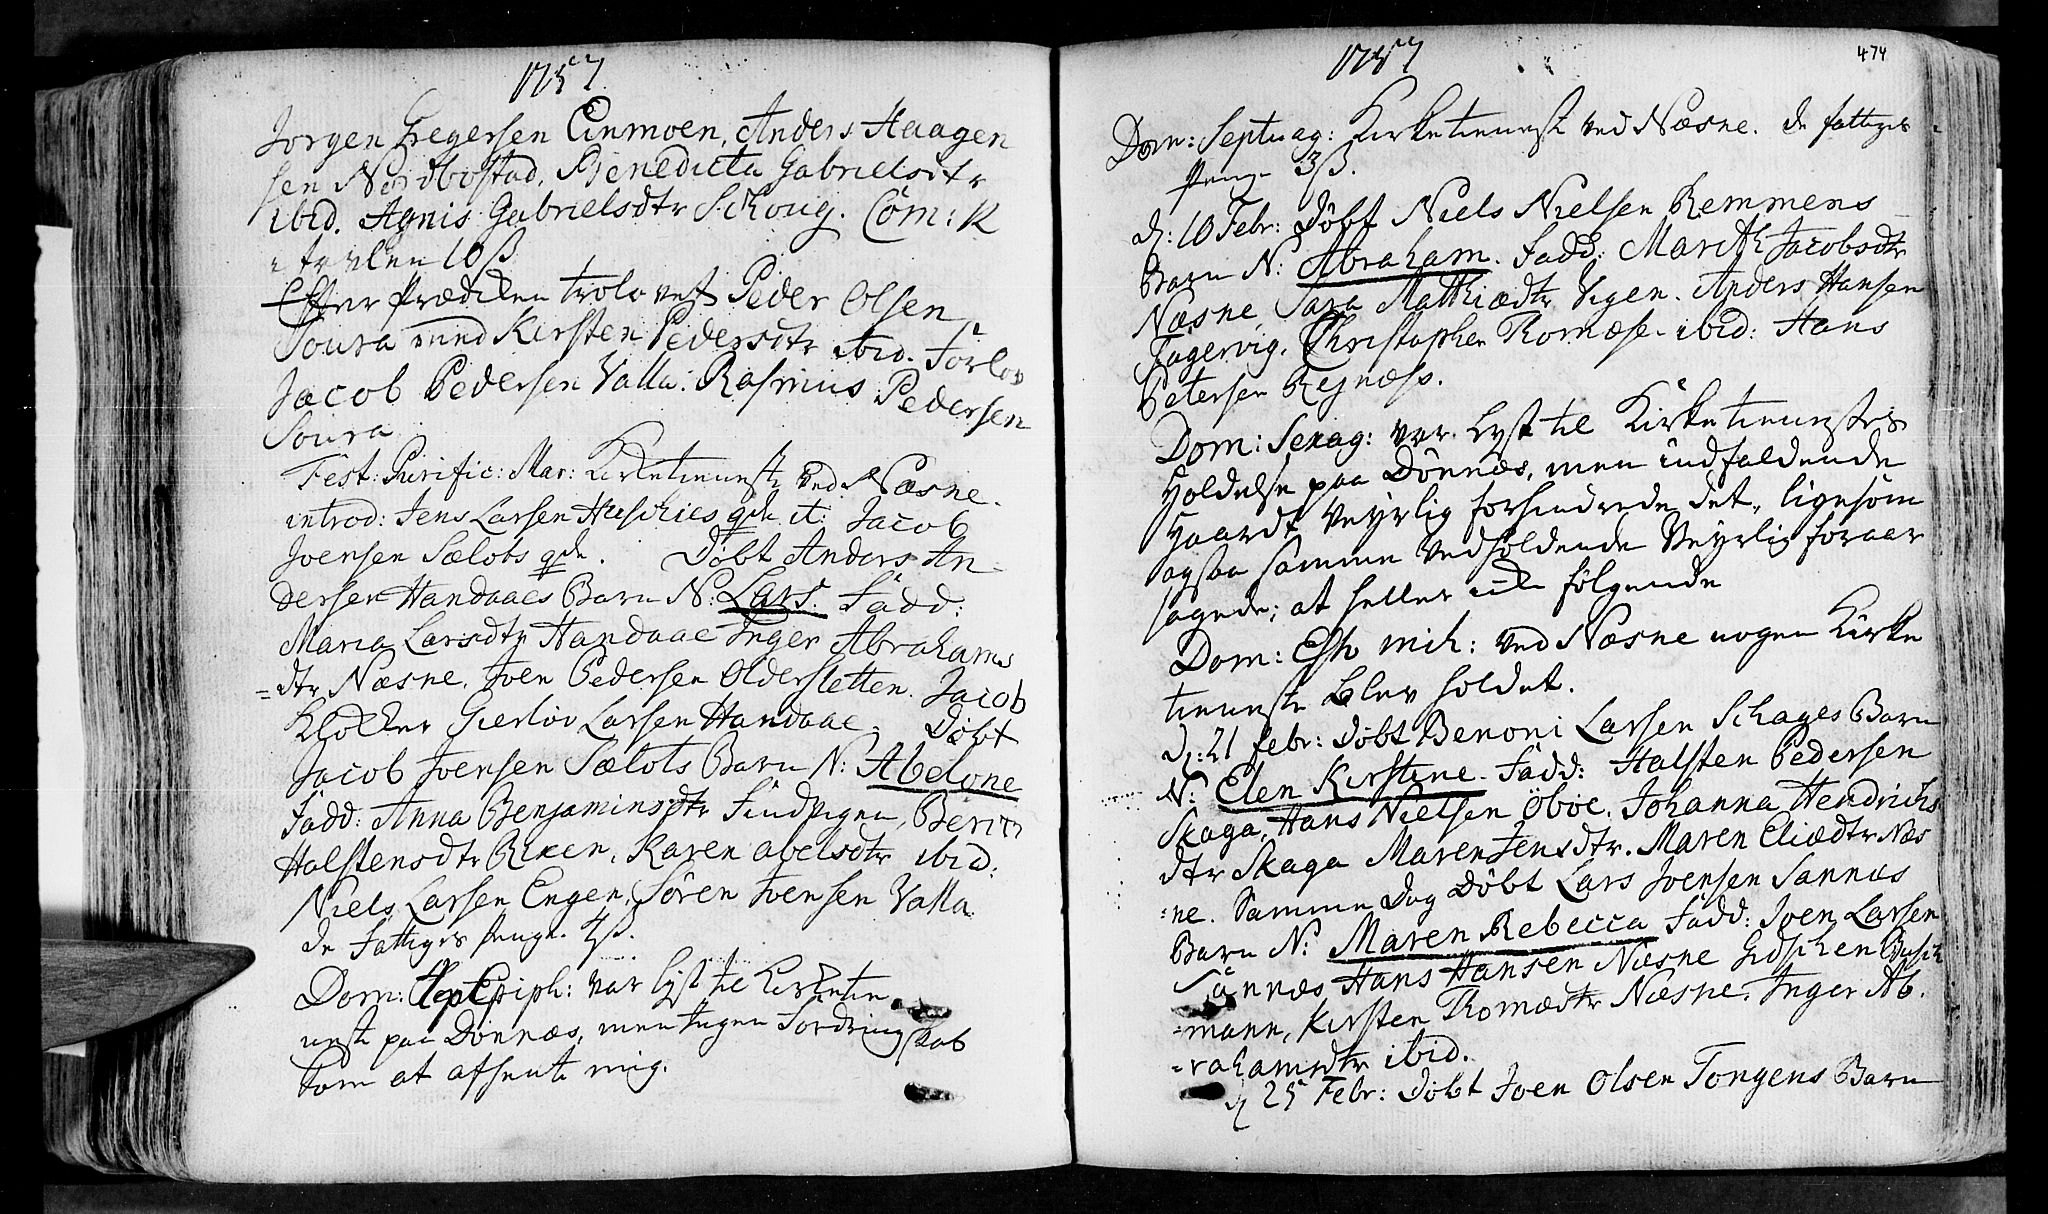 1757
Jorgen Gregersen Einmoen, Anders Haagen
sen Nordbostad, Benedicta Gabrielsdtr
ibid. Agnis Gabrielsdtr Skoug. Com: 12
10 ß
Efter Prædiken trolovet Peder Olsen
Soura med Kirsten Pedersdtr ibid. Forlov
Jacob Pedersen Valla: Rasmus Pedersen
Soura
Fest: Purific: Mar: Kirketienniste ved Næsne.
introd: Jens Larsen qde it: Jacob
Joensen Sælots qde. Döbt Anders An
dersen Handaaes Barn N: Lars. Fadd:
Maria Larsdtr Handaae Inger Abrahams
=dtr Næsne, Joen Pedersen Oldersletten. Jacob
Klocker Gierlöv Larsen Handaae. Döbt
Jacob Joensen Sælots Barn N: Abelone
Fadd: Anna Benjaminsdtr Findvigen, Berit
Halstensdtr Karen Abelsdtr ibid:
Niels Larsen Engen, Sören Joensen Valla
de Fattiges Penge. 4 ß.
Dom: Epiph: var lyst til Kirketie
neste paa Dönnæs, men Ingen Fordringskab
kom at afhente mig.
1757
474
Dom: Septuag: Kirketienniste ved Næsne. de fattiges
Penge 3 ß.
d: 10 Febr: Döbt Niels Nielsen Remmens
Barn N: Abraham. Fadd: Marith Jacobsdtr
Næsne, Sara Matthiædtr Vigen. Anders Hansen
Fagervig, Christopher Thomæsen ibid: Hans
Petersen Rejnæss.
Dom: Sexag: var Lyst til Kirketienestes
Holdelse paa Dönnæs, men indfaldende
Haardt Veyrlig forhindrede det, ligesom
ogsaa samme vedholdende Veyrlig foraar
sagede; at heller ich fölgende
Dom: Esto mih: ved Næsne nogen Kirke
tienniste blev holdet.
d: 21 febr: döbt Benoni Larsen Schages Barn
N: Elen Kirstine. Fadd: Halsten Pedersen
Skaga, Hans Nielsen Öboe. Johanna Hendrichs
dtr Skaga Maren Jensdtr. Maren Eliædtr Næs
=ne. Samme Dag Döbt Lars Joensen Sannæs
Barn N: Maren Rebecca Fadd: Joen Larsen
Sannæs Hans Hansen Næsne Gidsken Busch
=mann, Kirsten Thomædtr Næsne, Inger Ab.
=rahamsdtr ibid.
d 25 Febr: Döbt Joen Olsen Tongens Barn